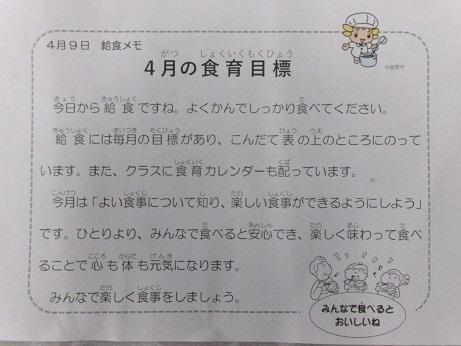 4月9日　給食メモ
4月の食育目標
今日から給食ですね。よくかんでしっかり食べてください。
給食には毎月の目標があり、こんだて表の上のところにのって
います。また、クラスに食育カレンダーも配っています。
今月は「よい食事について知り、楽しい食事ができるようにしよう」
です。ひとりより、みんなで食べると安心でき、楽しく味わって食べ
ることで心も体も元気になります。
みんなで楽しく食事をしましょう。
みんなで食べると
おいしいね